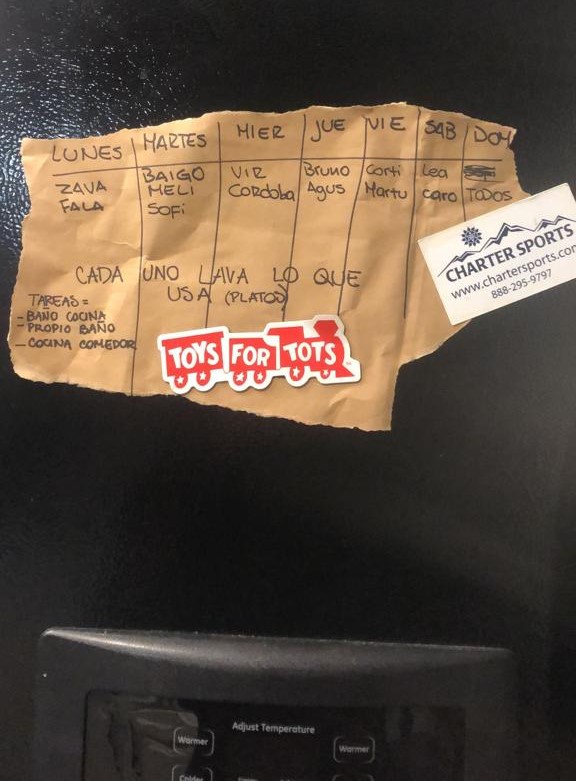 LUNES MARTES MIER JUE VIE SAB DOM
ZAVA BAIGO VIR Bruno Corti Lea
FALA MELI Cordoba Agus Martu caro TODOS
SOFI
CADA UNO LAVA LO QUE
USA (PLATOS)
TAREAS =
- BAÑO COCINA
- PROPIO BAÑO
- COCINA COMEDOR
TOYS FOR TOTS
CHARTER SPORTS
www.chartersports.com
888-295-9797
Adjust Temperature
Warmer Warmer
Colder